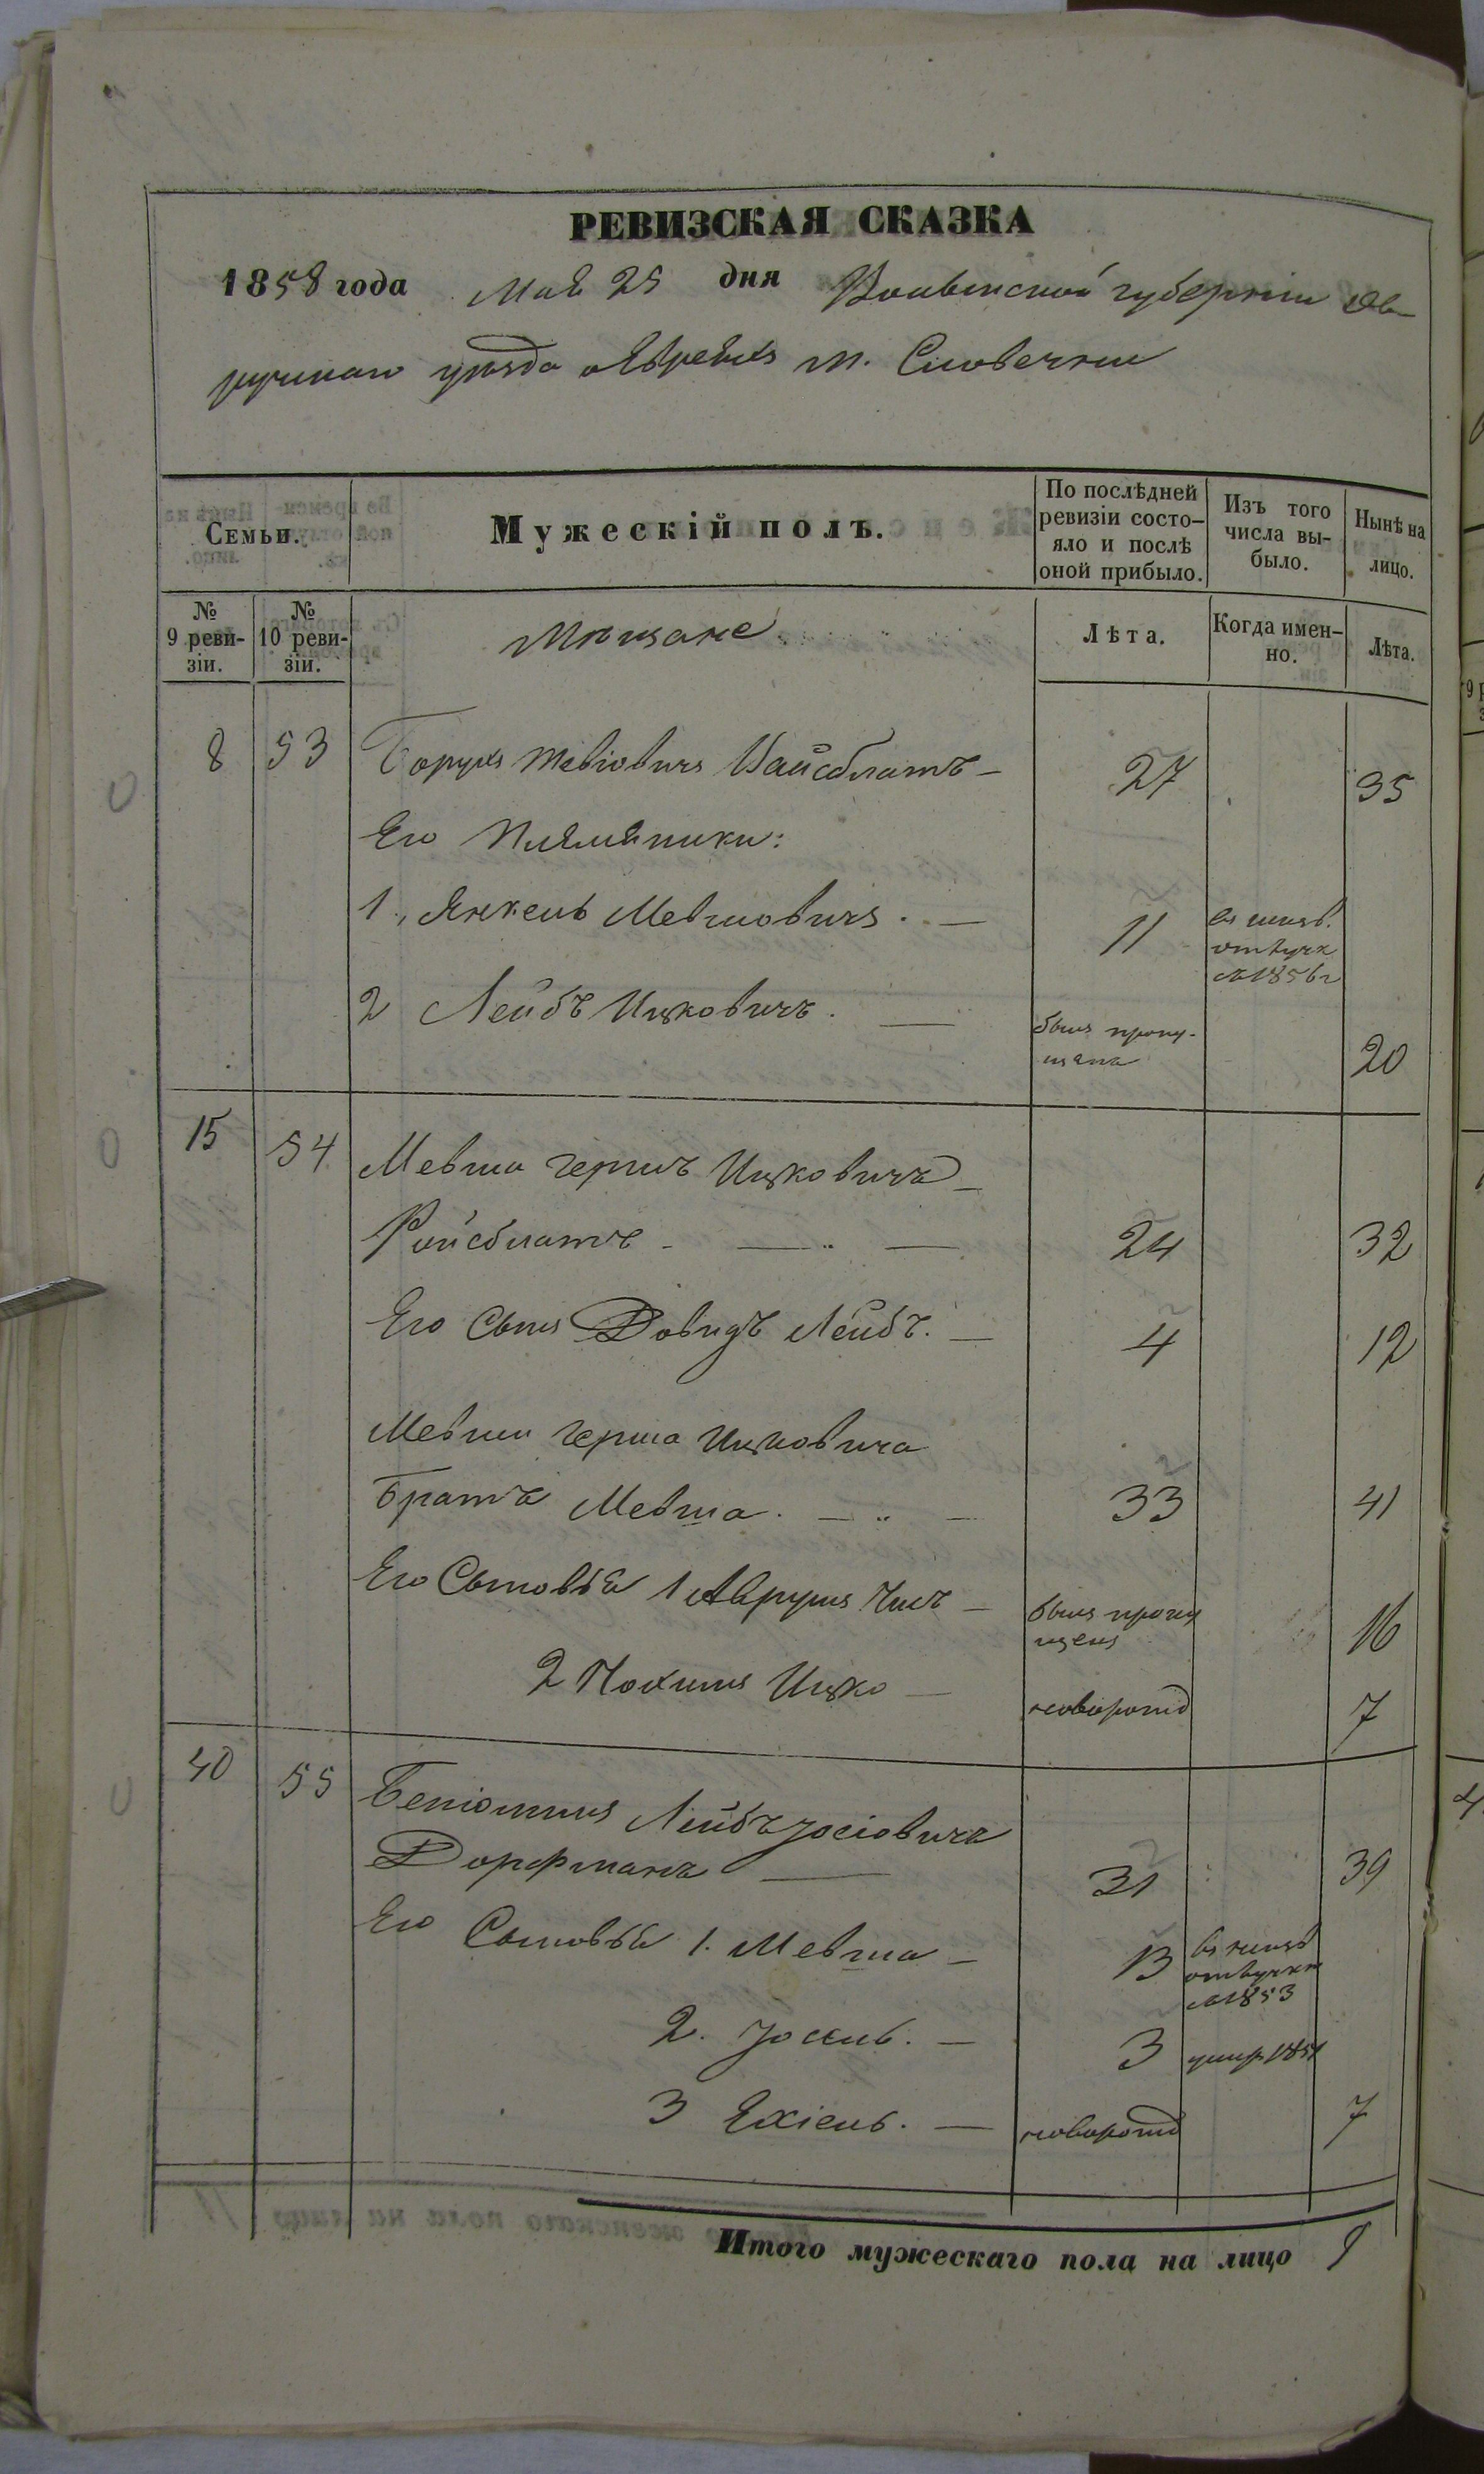 РЕВИЗСКАЯ СКАЗКА
1858 года Мая 25 дня Волынской губерніи Ов
ручскаго уезда о Евреяхъ м. Словечни
Семьи.
Мужескій полъ.
По послѣдней ревизіи состо-яло и послѣ оной прибыло.
Изъ того числа вы-было.
Нынѣ на лицо.
№ 9 реви-зіи.
№ 10 реви-зіи.
Мѣщане
Лѣта.
Когда имен-но.
Лѣта.
8 53 Борухъ Тевіовичъ Вайсблатъ 27 35
Его Племяники:
1, Янкель Мевшовичъ. 11 въ неизв. отлучк съ 1856 г
2 Лейбъ Ицковичъ. былъ пропу-щенъ 20
15 54 Мевша Гершъ Ицковичъ
Ройсблатъ 24 32
Его Сынъ Довидъ Лейбъ. 4 12
Мевши Герша Ицковича
Братъ Мевша. 33 41
Его Сыновья 1 Аврумъ Чиль былъ пропу щенъ 16
2 Нохимъ Ицко новорожд 7
40 55 Беніоминъ Лейбъ Іосіовичъ
Дорфманъ 31 39
Его Сыновья 1. Мевша 13 въ неизв отлучкѣ съ 1853
2. Іосель. 3 умер 1851
3 Ехіель. новорожд 7
Итого мужескаго пола на лицо 9